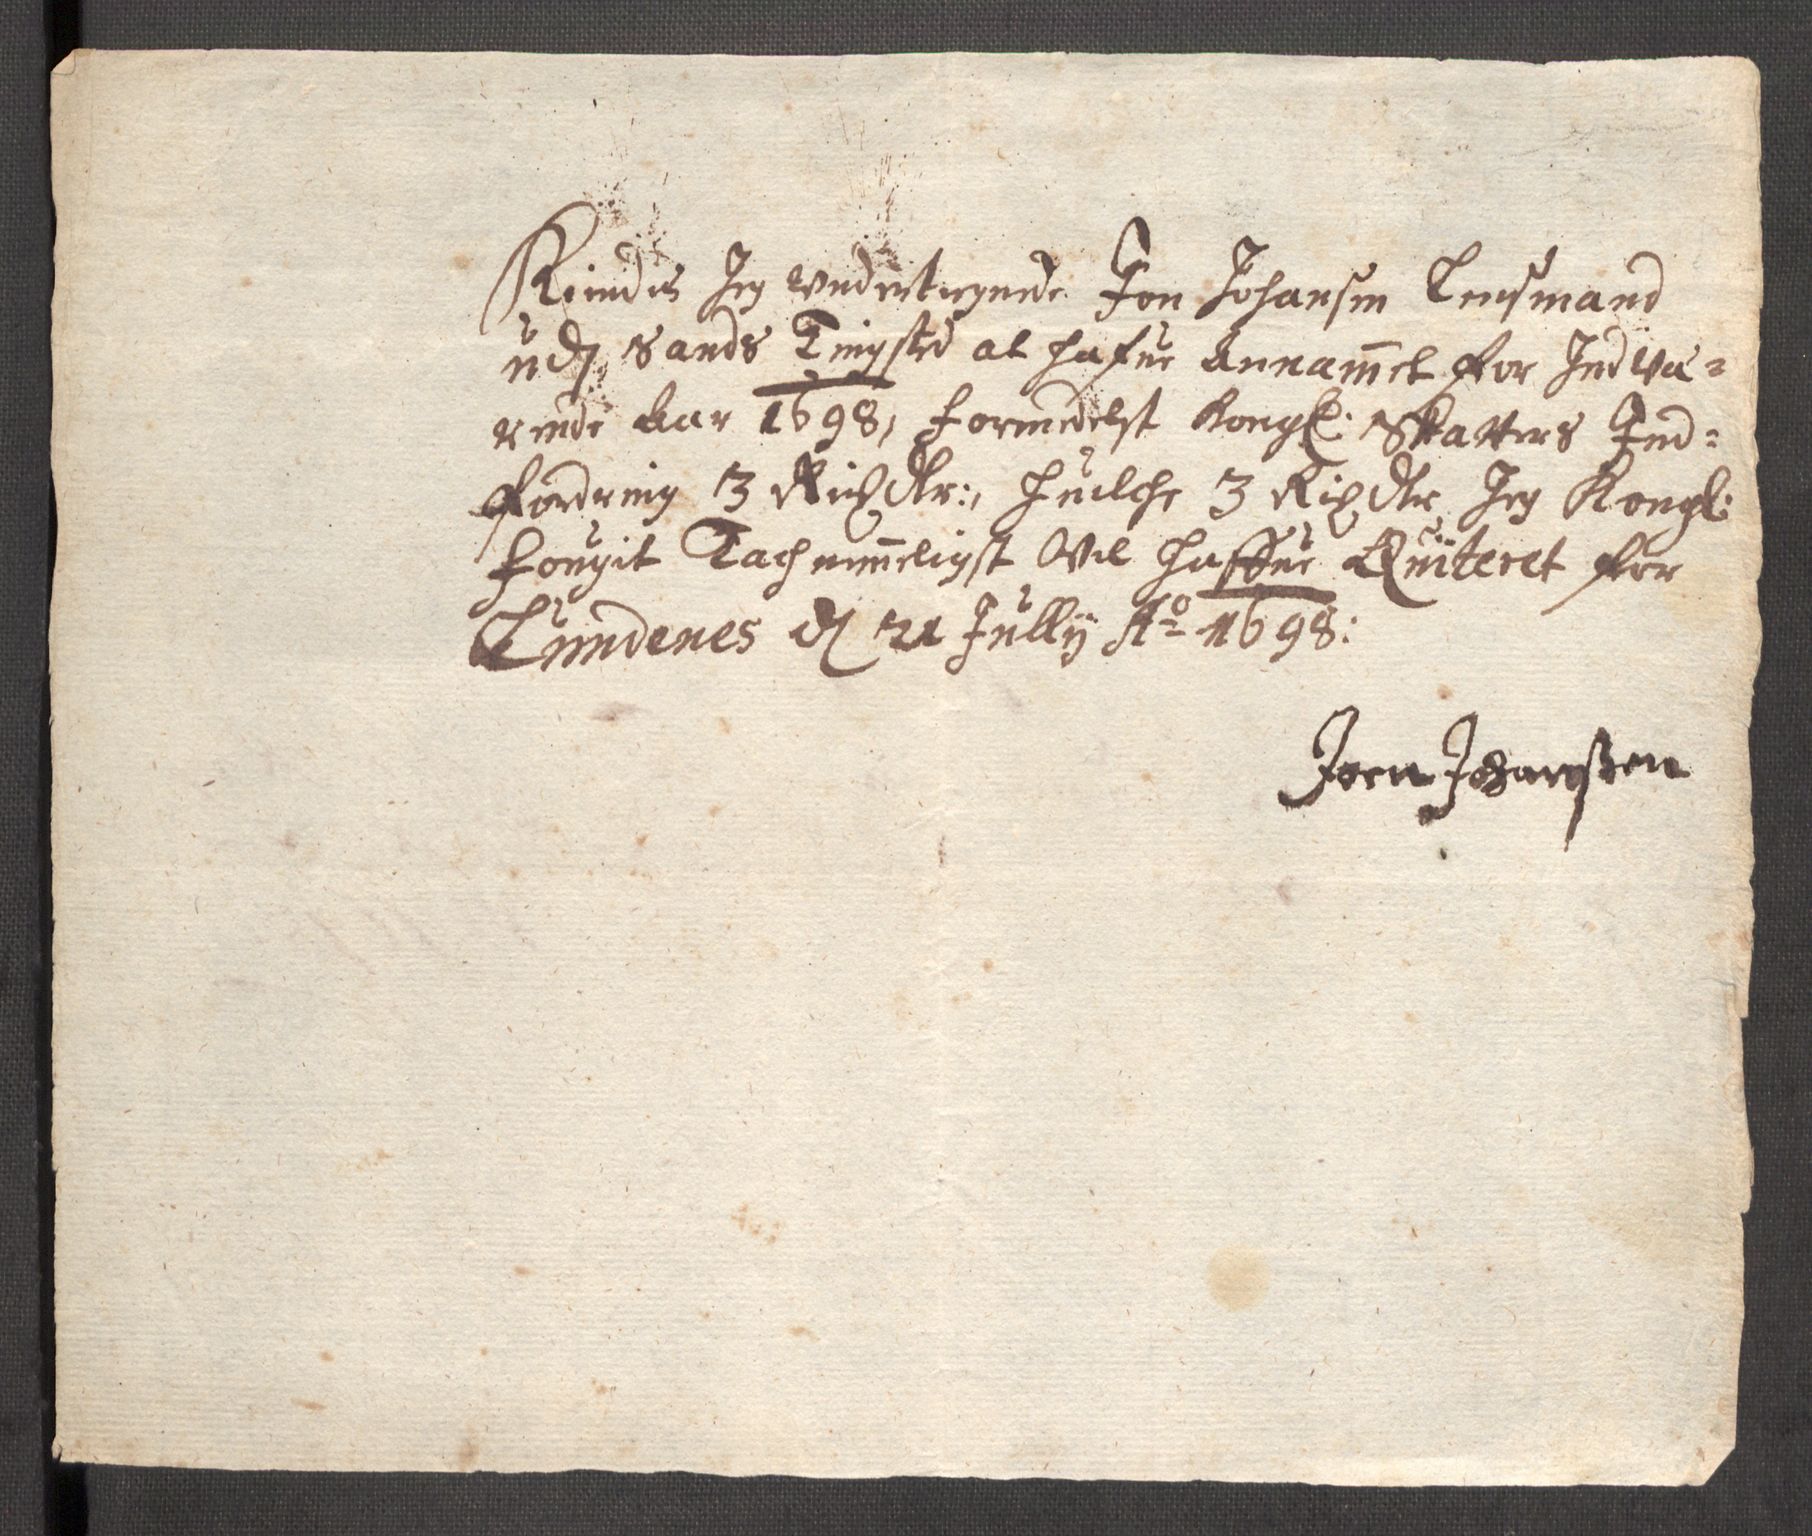 Kiendis Jeg Undertegnede Jon Johansen Lensmand
udj Sands Tingsted at hafue Annammet for Indva=
rende Aar 1698, formedelst Kongl: Skatters Ind=
fordring 3 Rixdlr:, huilche 3 Rixdlr Jeg Kongl:
fougit Tachnemmeligst Vil haffue Quiteret for
Lundenes d 21 Jullij Ao 1698:
Joen Johanßen